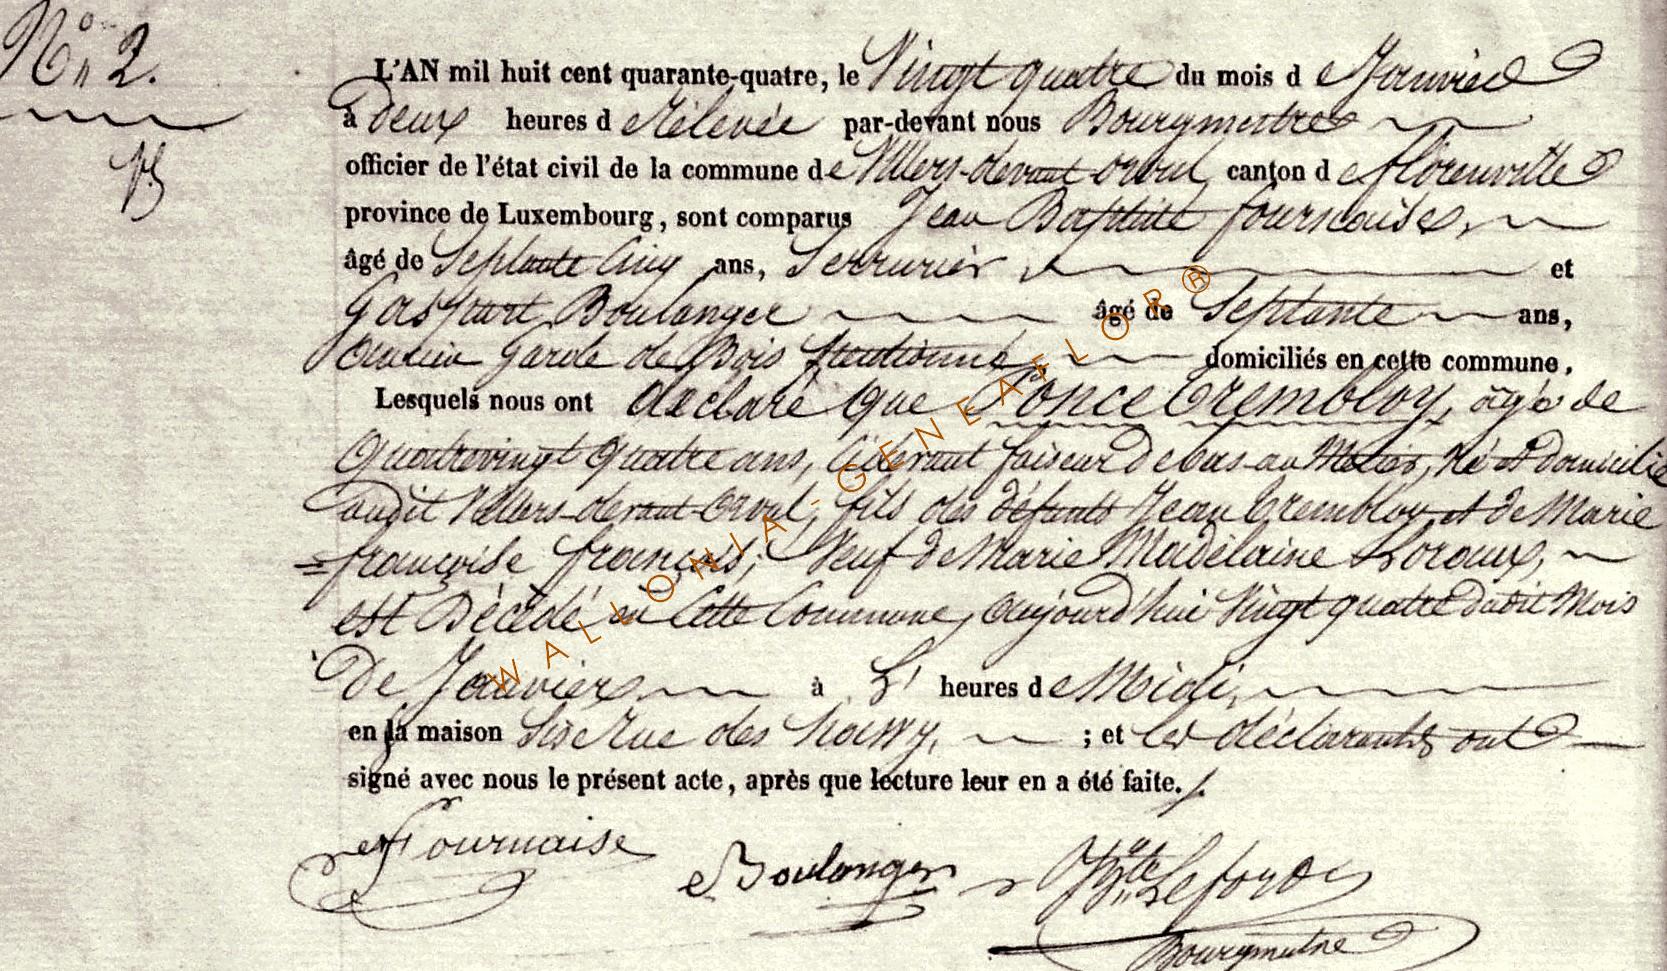 N° 2.
L'AN mil huit cent quarante-quatre, le Vingt quatre du mois de Janvier
à deux heures de Rélevée par-devant nous Bourgmestre
officier de l'état civil de la commune de Villers-devant-orval, canton de florenville
province de Luxembourg, sont comparus Jean Baptiste fournaise,
âgé de Septante Cinq ans, Serrurier et
Gaspart Boulanger âgé de Septante ans,
ancien Garde de Bois domiciliés en cette commune.
Lesquels nous ont declaré que Ponce Trembloy, âgé de
Quatrevingt quatre ans, Cidevant faiseur de bas au Métier, Né et domicilié
audit Villers-devant-Orval, fils des défunts Jean Trembloy et de Marie
françoise françois; Veuf de Marie Madelaine Loraux,
est Décédé en Cette Commune, aujourd'hui Vingt quatre dudit Mois
de Janvier à heures de Midi,
en la maison Sise Rue des ; et les déclarants ont
signé avec nous le présent acte, après que lecture leur en a été faite./.
Fournaise
Boulanger
Bte Lefort
Bourgmestre
WALLONIA-GENEAFLOR®